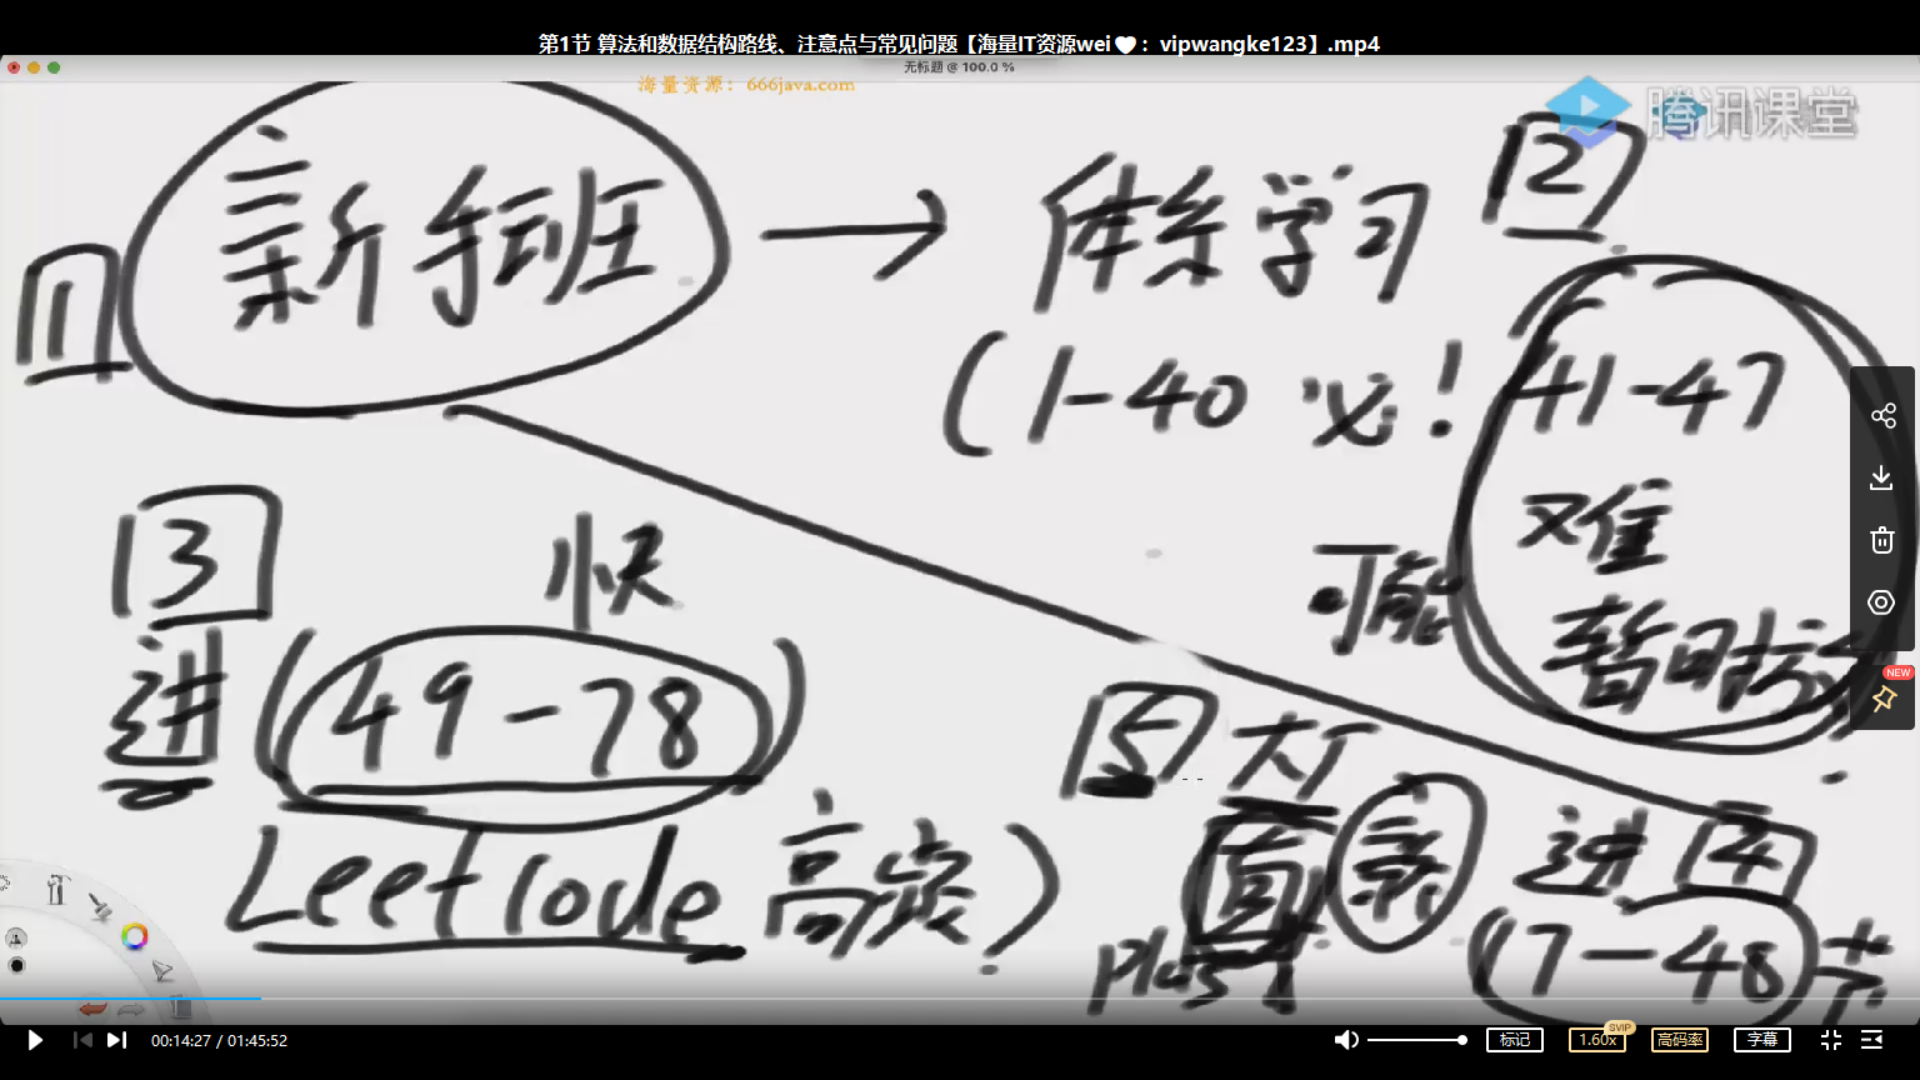 第1节 算法和数据结构路线、注意点与常见问题【海量IT资源wei❤：vipwangke123】.mp4
无标题 @ 100.0 %
海量资源：666java.com
腾讯课堂
1 新手班 → 体系学习 2
(1-40 必! 41-47
难
可能 暂时放
3 快
进 (49-78)
Leetcode 高频)
5 大厂
新 进 4
17-48 节
NEW
00:14:27 / 01:45:52
标记
SVIP
1.60x
高码率
字幕